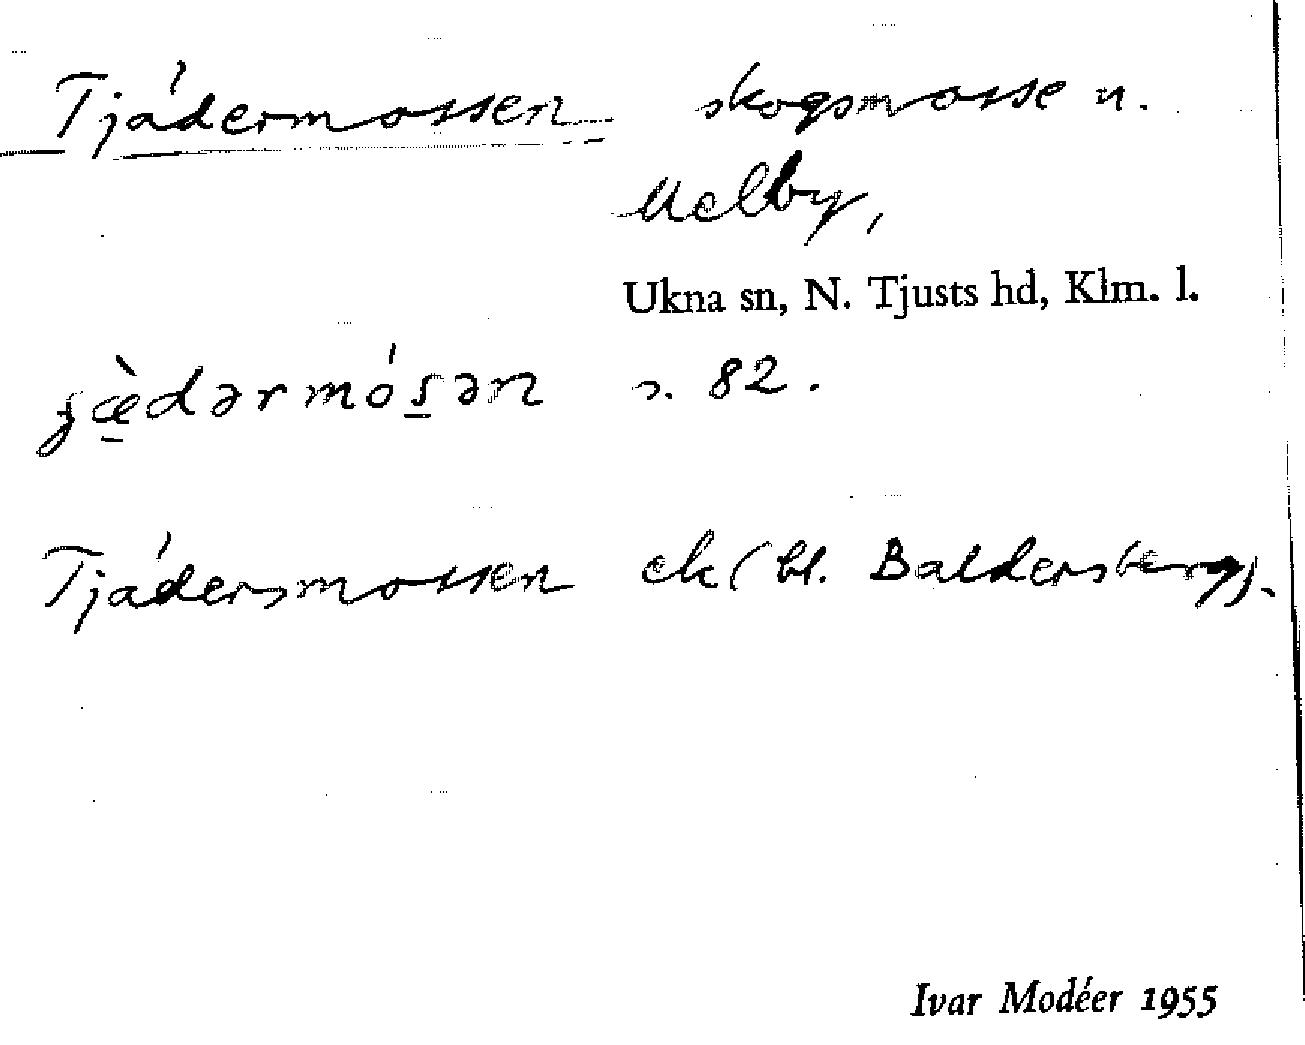 Tjádermossen skogsmosse u.
Melby,
Ukna sn, N. Tjusts hd, Klm. l.
s. 82.
Tjádersmossen ek (bl. Baldersberg).
Ivar Modéer 1955